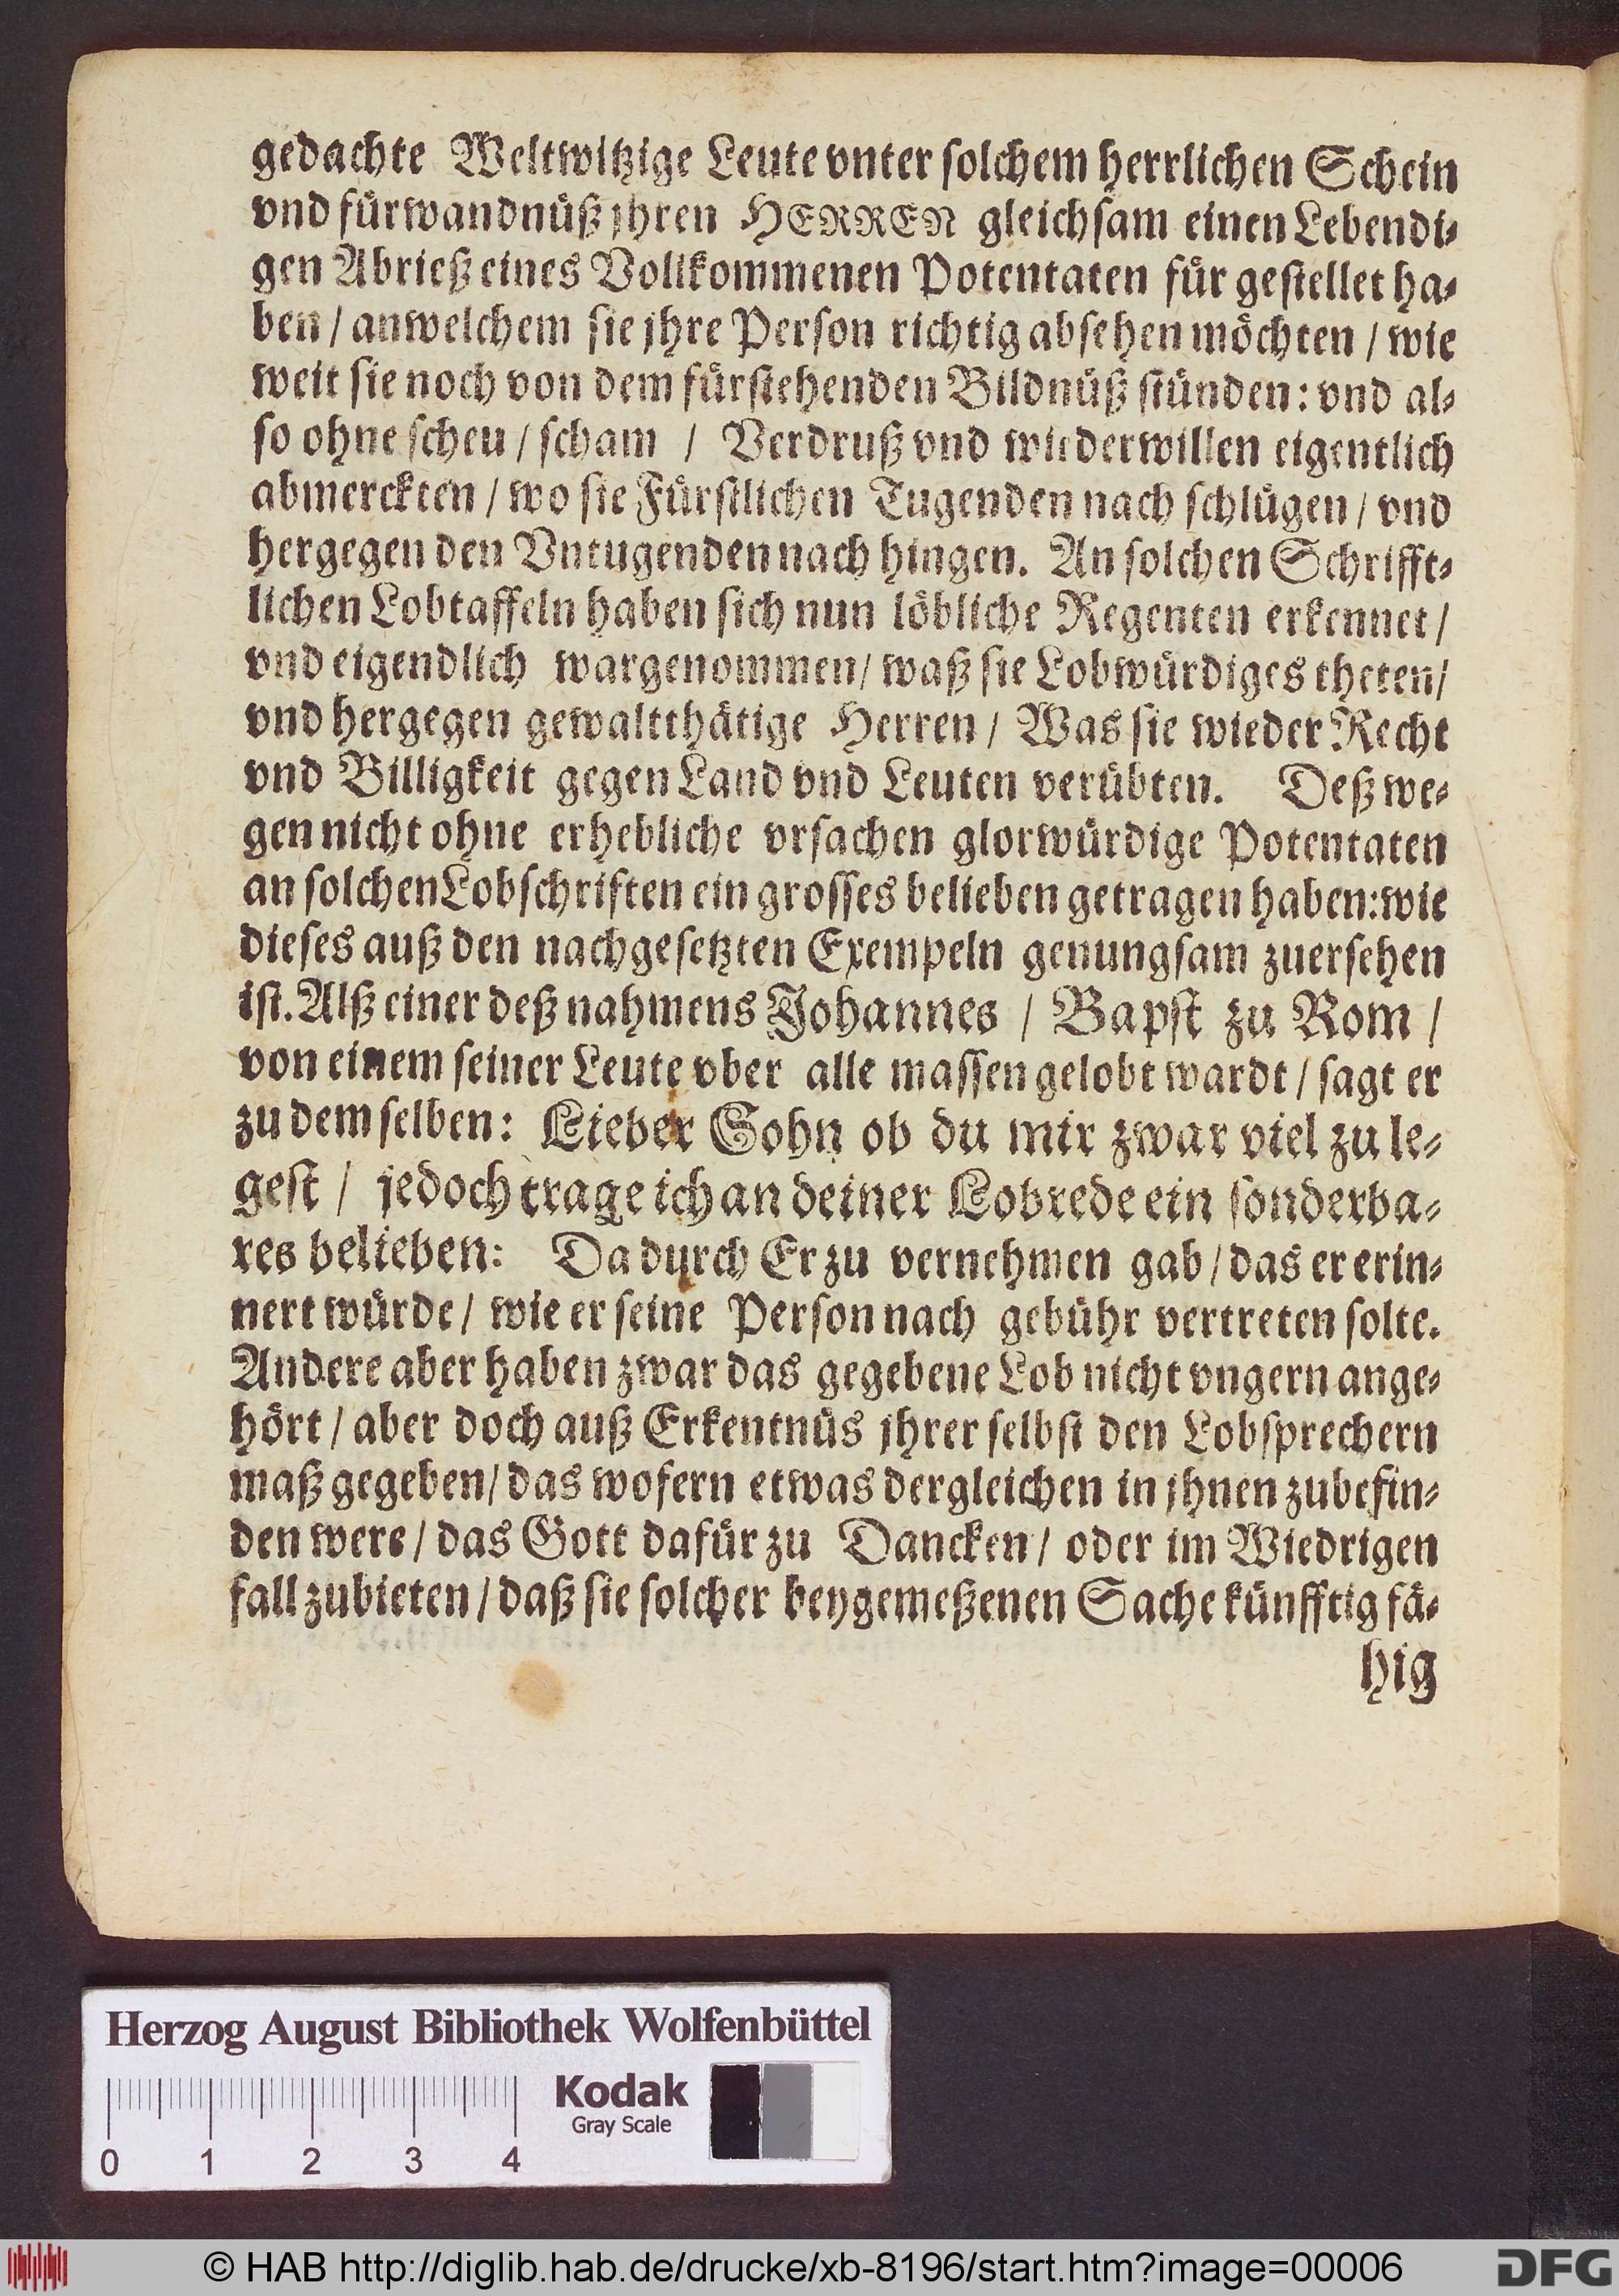 gedachte Weltwitzige Leute vnter ſolchem herrlichen Schein
vnd fürwandnüß jhren HERREN gleichſam einen Lebendi⸗
gen Abrieß eines Vollkommenen Potentaten für geſtellet ha⸗
ben / anwelchem ſie jhre Perſon richtig abſehen möchten / wie
weit ſie noch von dem fürſtehenden Bildnüß ſtünden: vnd al⸗
ſo ohne ſcheu / ſcham / Verdruß vnd wiederwillen eigentlich
abmerckten / wo ſie Fürſtlichen Tugenden nach ſchlügen / vnd
hergegen den Vntugenden nach hingen. An ſolchen Schrifft⸗
lichen Lobtaffeln haben ſich nun löbliche Regenten erkennet /
vnd eigendlich wargenommen / waß ſie Lobwürdiges theten /
vnd hergegen gewaltthätige Herren / Was ſie wieder Recht
vnd Billigkeit gegen Land vnd Leuten verübten. Deß we⸗
gen nicht ohne erhebliche vrſachen glorwürdige Potentaten
an ſolchen Lobſchriften ein groſſes belieben getragen haben: wie
dieſes auß den nachgeſetzten Exempeln genungſam zuerſehen
iſt. Alß einer deß nahmens Johannes / Bapſt zu Rom /
von einem ſeiner Leute vber alle maſſen gelobt wardt / ſagt er
zu dem ſelben: Lieber Sohn ob du mir zwar viel zu le⸗
geſt / jedoch trage ich an deiner Lobrede ein ſonderba⸗
res belieben: Da durch Er zu vernehmen gab / das er erin⸗
nert würde / wie er ſeine Perſon nach gebühr vertreten ſolte.
Andere aber haben zwar das gegebene Lob nicht vngern ange⸗
hört / aber doch auß Erkentnüs jhrer ſelbſt den Lobſprechern
maß gegeben / das wofern etwas dergleichen in jhnen zubefin⸗
den were / das Gott dafür zu Dancken / oder im Wiedrigen
fall zubieten / daß ſie ſolcher beygemeßenen Sache künfftig fä⸗
hig
Herzog August Bibliothek Wolfenbüttel
Kodak
Gray Scale
0 1 2 3 4
© HAB http://diglib.hab.de/drucke/xb-8196/start.htm?image=00006
DFG